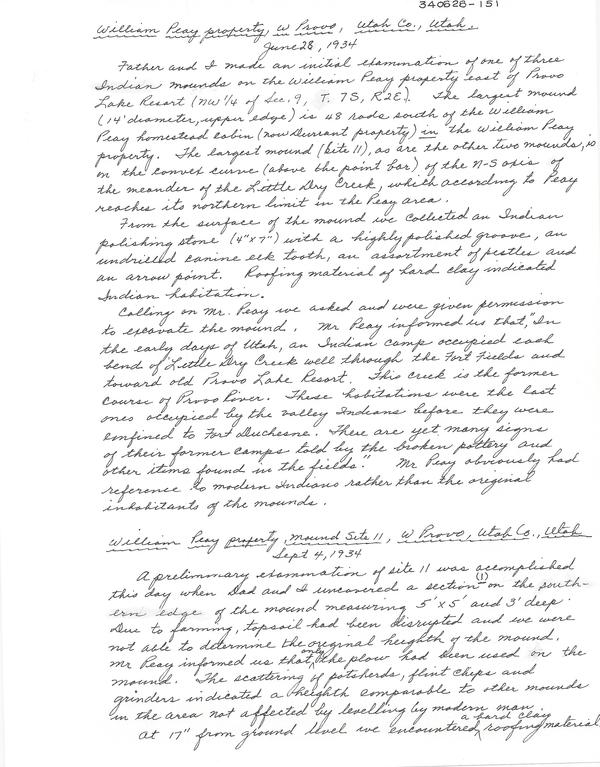 340628-151
William Peay property, W Provo, Utah Co., Utah.
June 28, 1934
Father and I made an initial examination of one of three
Indian mounds on the William Peay property east of Provo
Lake Resort (NW 1/4 of Sec. 9, T. 7S, R2E). The largest mound
(14' diameter, upper edge) is 48 rods south of the William
Peay homestead cabin (now Durrant property) in the William Peay
property. The largest mound (site 11), as are the other two mounds, is
on the convex curve (above the point bar) of the N-S axis of
the meander of the Little Dry Creek, which according to Peay
reaches its northern limit in the Peay area.
From the surface of the mound we collected an Indian
polishing stone (4"x7") with a highly polished groove, an
undrilled canine elk tooth, an assortment of pestles and
an arrow point. Roofing material of hard clay indicated
Indian habitation.
Calling on Mr. Peay we asked and were given permission
to excavate the mound. Mr Peay informed us that, "In
the early days of Utah, an Indian camp occupied each
bend of Little Dry Creek well through the Fort Fields and
toward old Provo Lake Resort. This creek is the former
course of Provo River. These habitations were the last
ones occupied by the valley Indians before they were
confined to Fort Duchesne. There are yet many signs
of their former camps told by the broken pottery and
other items found in the fields." Mr Peay obviously had
reference to modern Indians rather than the original
inhabitants of the mounds.
William Peay property, Mound Site 11, W Provo, Utah Co., Utah
Sept 4, 1934
A preliminary examination of site 11 was accomplished
this day when Dad and I uncovered a section (1) on the south-
ern edge of the mound measuring 5' x 5' and 3' deep.
Due to farming, topsoil had been disrupted and we were
not able to determine the original heighth of the mound.
Mr Peay informed us that only the plow had been used on the
mound. The scattering of potsherds, flint chips and
grinders indicated a heighth comparable to other mounds
in the area not affected by levelling by modern man.
At 17" from ground level we encountered a hard clay roofing material